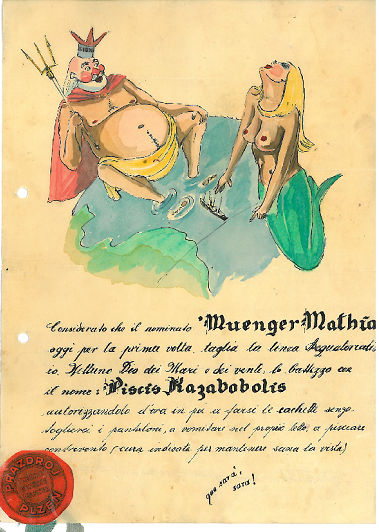 Considerato che il nominato "Muenger Mathia
oggi per la prima volta taglia la linea Aequatoriale
io, Nettuno Deo dei Mari e dei venti, lo battizzo con
il nome: Piscis Kazabobolis
autorizzandolo d'ora in pu a farsi le cachette senza
togliersi i pantaloni, a vomitare nel proprio letto, a pisciare
controvento (cura indicata per mantenere sana la vista)
que sarà,
sara!
PRAZDROJ
PLZEŇ